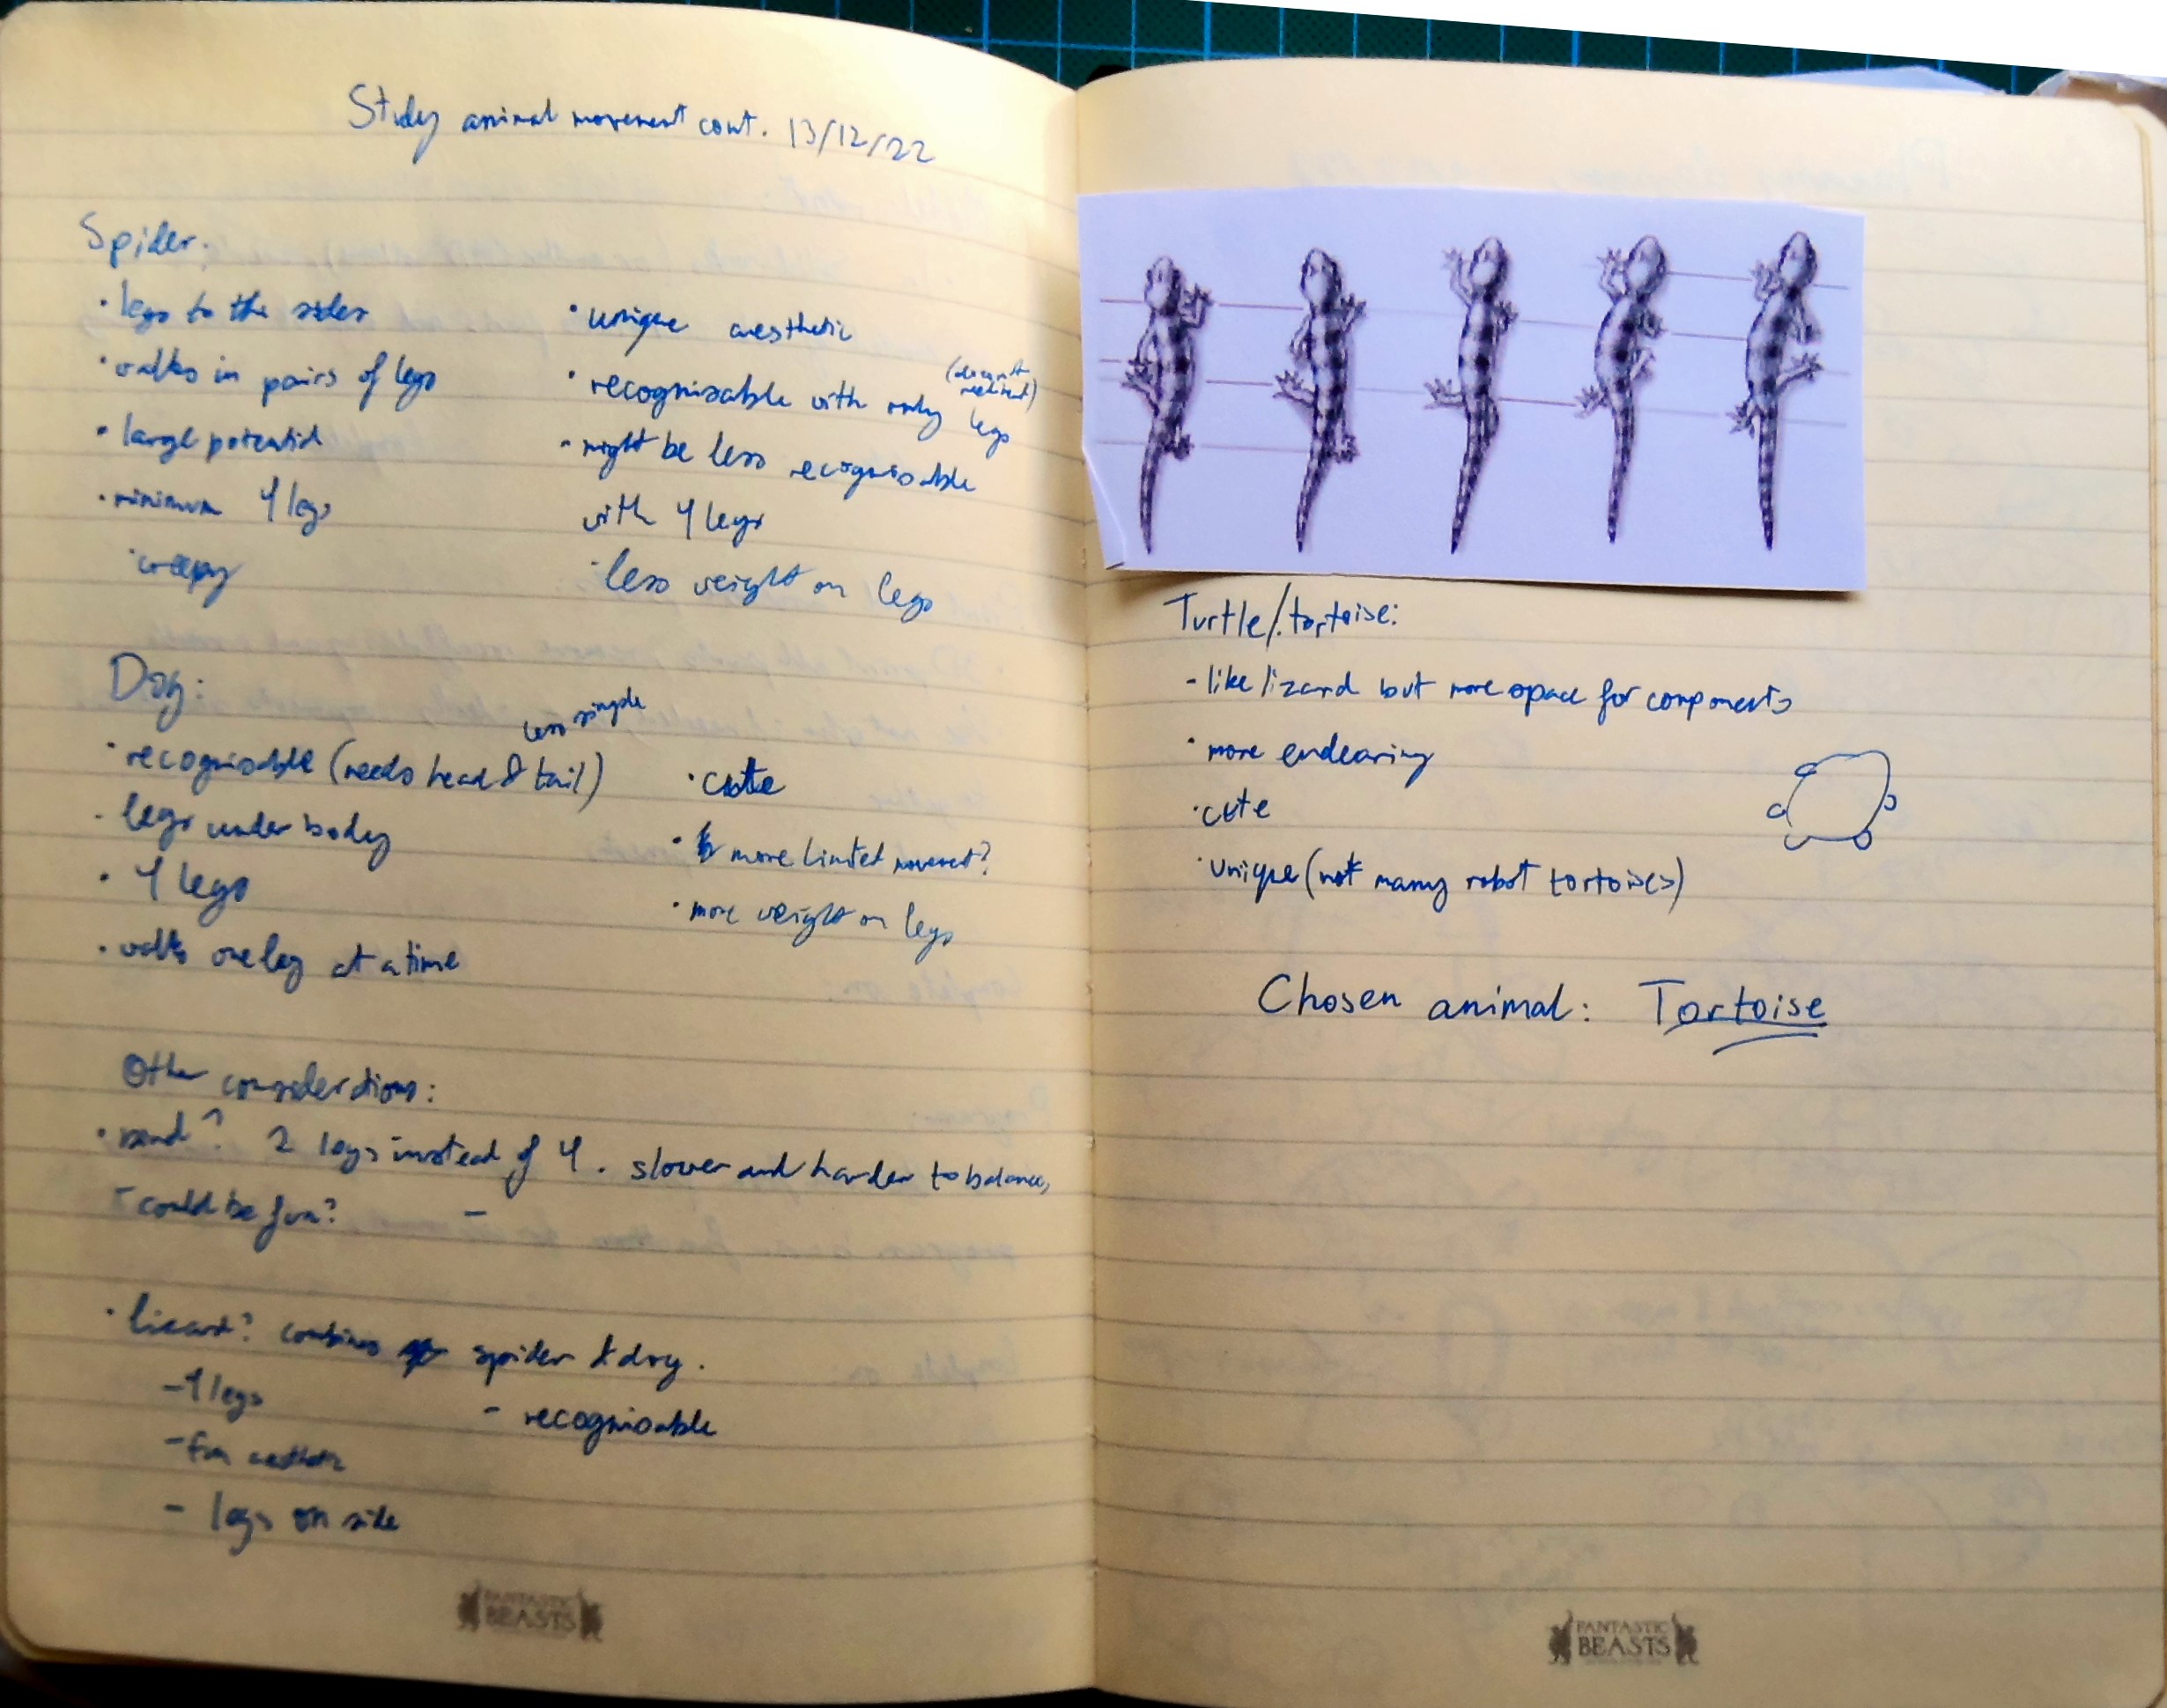 Study animal movement cont. 13/12/22
Spider.
• legs to the sides
• walks in pairs of legs
• large potential
• minimum 4 legs
• creepy
• unique aesthetic
• recognisable with only legs
• might be less recognisable
with 4 legs
• less weight on legs
Dog:
less simple
• recognisable (needs head & tail)
• legs under body
• 4 legs
• walks one leg at a time
• cute
• more limited movement?
• more weight on legs
Other considerations:
• 2 legs instead of 4. slower and harder to balance,
- could be fun? -
• lizard? combines spider & dog.
- 4 legs
- fun aesthetic
- legs on side
- recognisable
FANTASTIC
BEASTS
Turtle/tortoise:
- like lizard but more space for components
• more endearing
• cute
• unique (not many robot tortoises)
Chosen animal: Tortoise
FANTASTIC
BEASTS